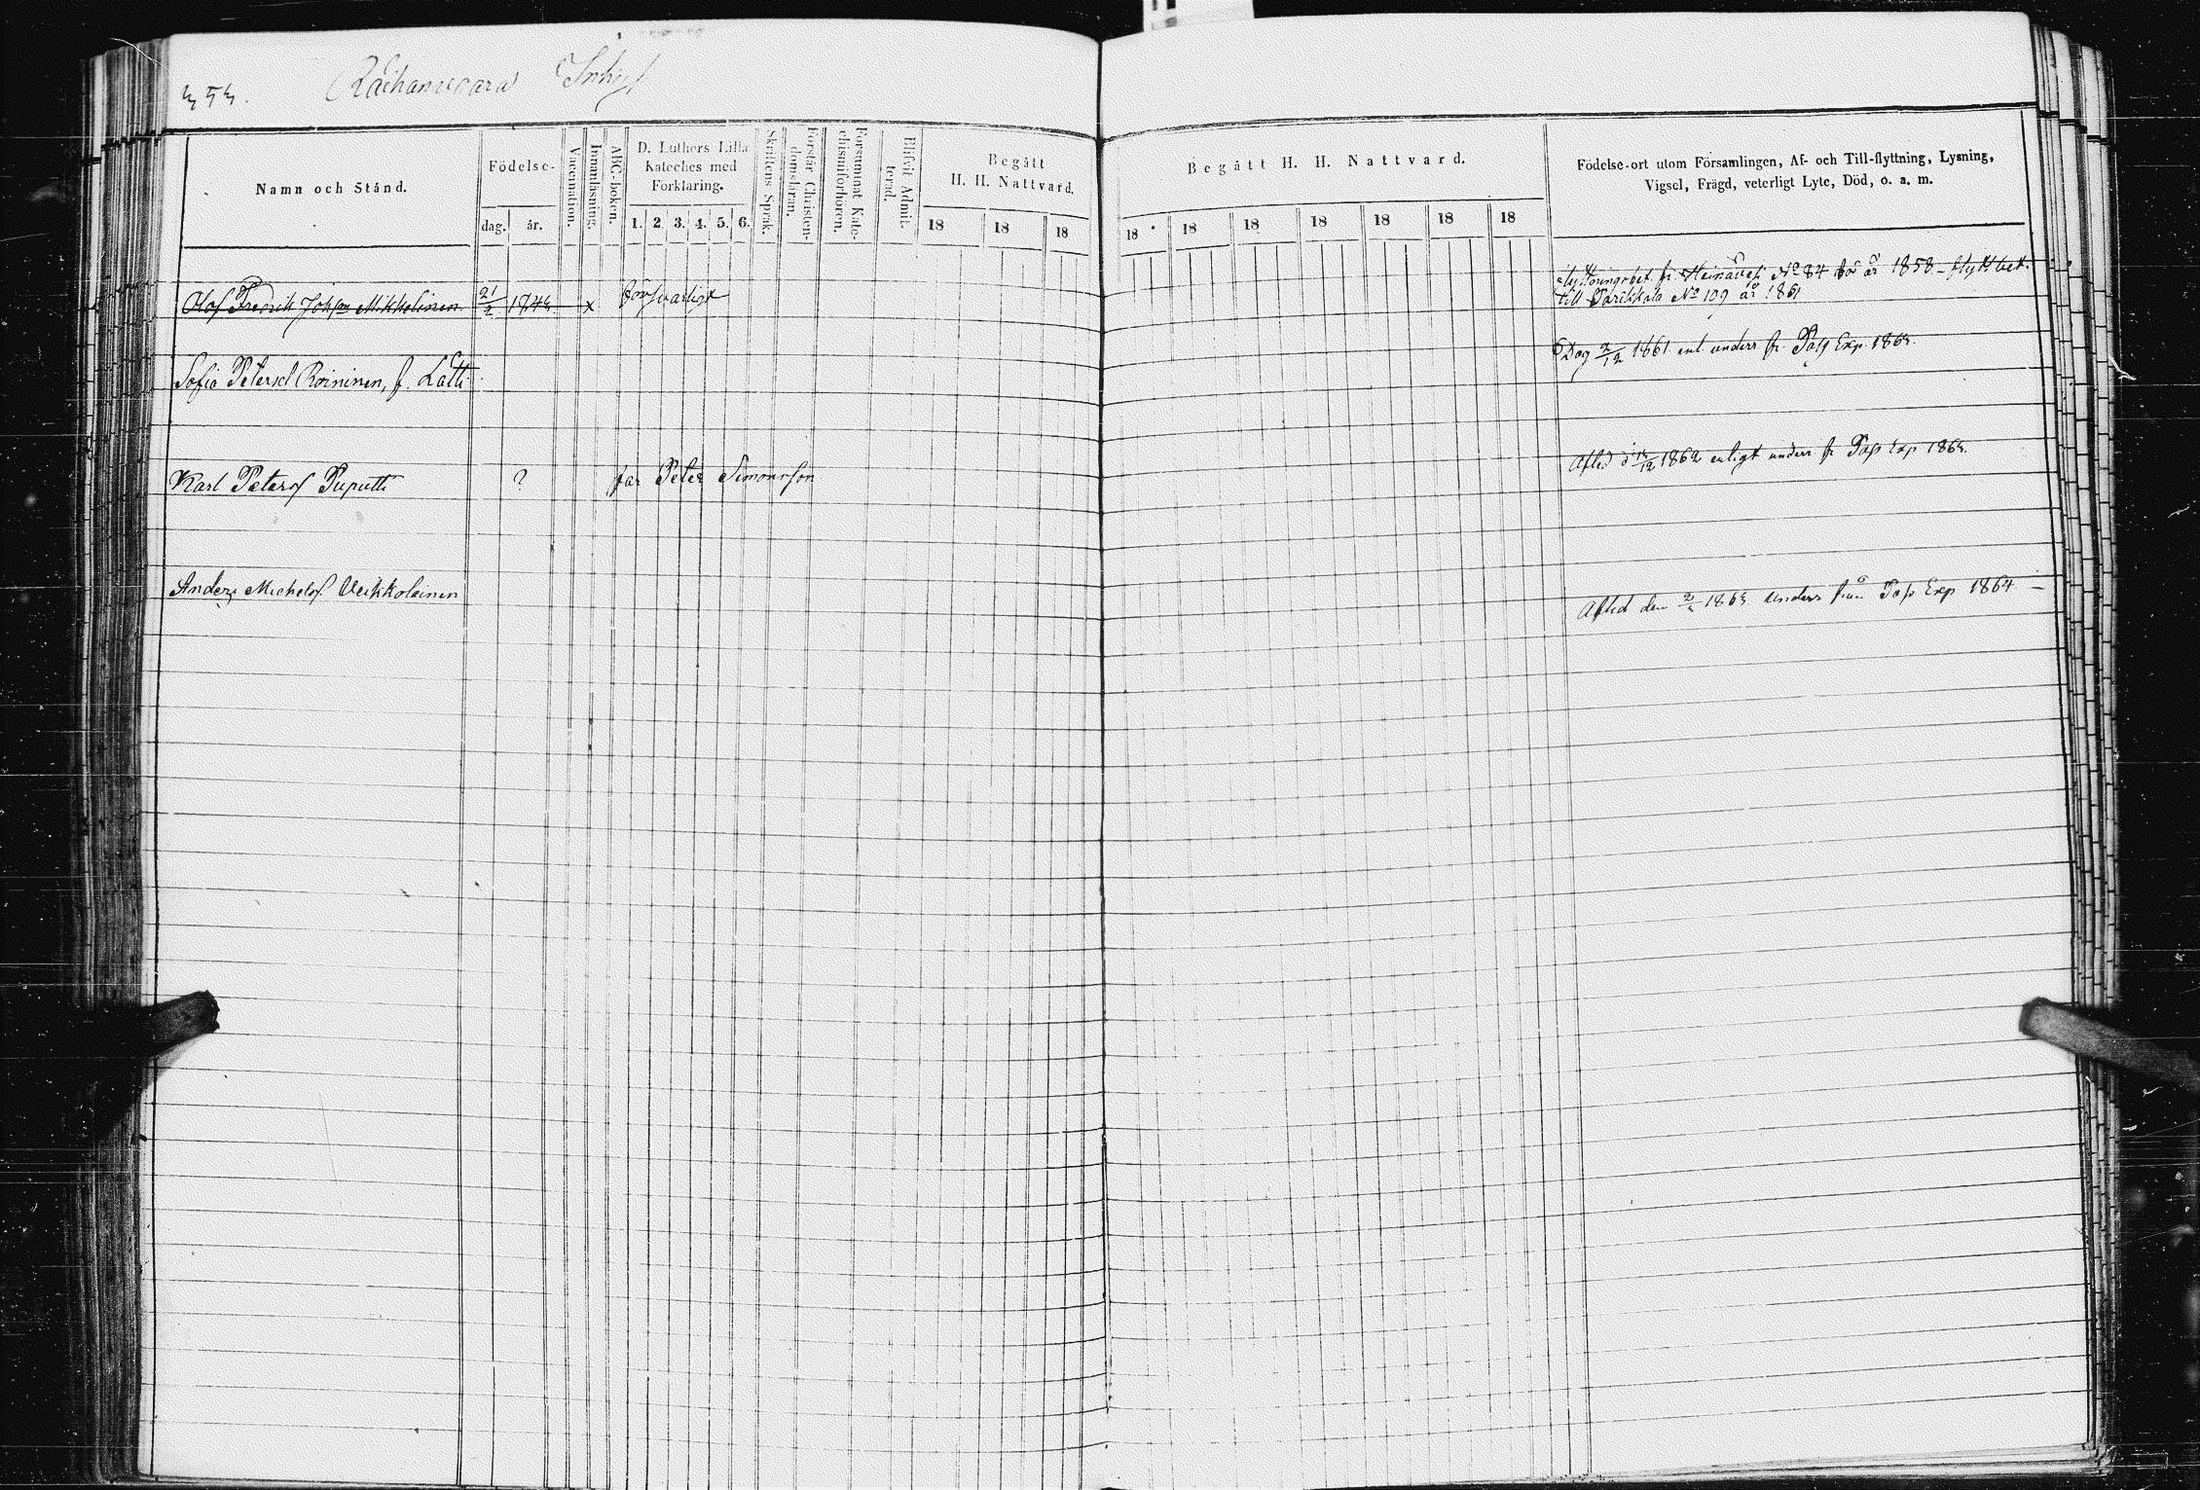 353. Räihänwaara Inhys
Namn och Stånd.
Födelse-
dag. år.
Vaccination.
Innanläsning.
ABC-boken.
D. Luthers Lilla
Kateches med
Förklaring.
1. 2. 3. 4. 5. 6.
Skriftens Språk.
Förstår Christen-
domsläran.
Försummat Kate-
chismiförhören.
Blifvit Admit-
terad.
Begått
H. H. Nattvard.
18 18 18
Begått H. H. Nattvard.
18 18 18 18 18 18 18
Födelse-ort utom Församlingen, Af- och Till-flyttning, Lysning,
Vigsel, Frägd, veterligt Lyte, Död, o. a. m.
Olof Fredrik Johsson Mikkolainen 21/2 1843 x försvarligt
flyttningsbet. fr. No 84 för år 1858 - flyttbet.
till Parikkala No 109 år 1861
Sofia Petersd Roininen, f. Lätti
Dog 2/12 1861 enl underr fr. Pass Exp. 1863.
Karl Peterss Puputti ? far Peter Simonsson
Afled d 12/12 1862 enligt underr fr Pass Exp 1863.
Anders Michelss Veikkolainen
Afled den 1863 underr från Pass Exp 1864